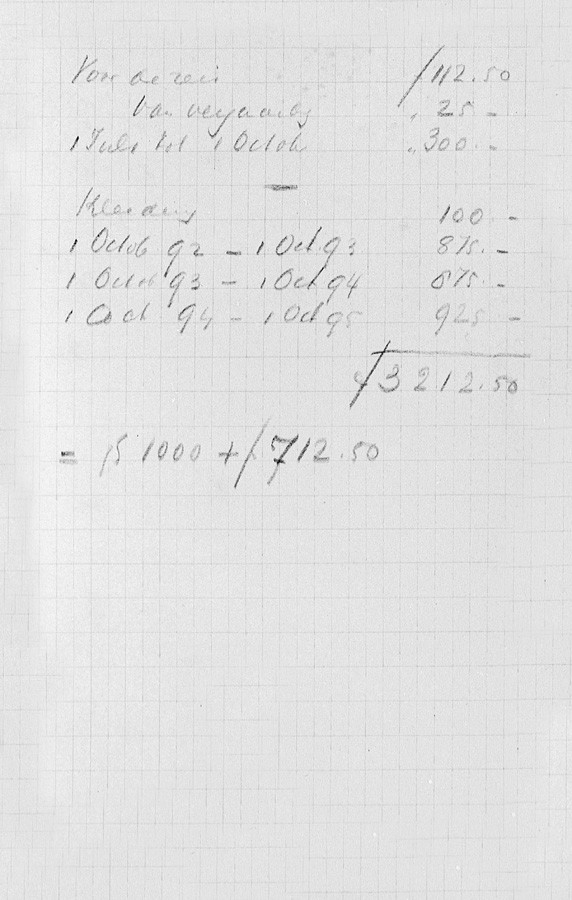 Voor de reis ƒ112.50
Van „ 25 –
1 Juli tot 1 Octob „ 300. –
–
Kleeding 100 –
1 Octob 92 – 1 Oct. 93 875. –
1 Octob 93 – 1 Oct 94 875. –
1 Oct 94 – 1 Oct 95 925 –
ƒ3212.50
= $ 1000 + ƒ712.50